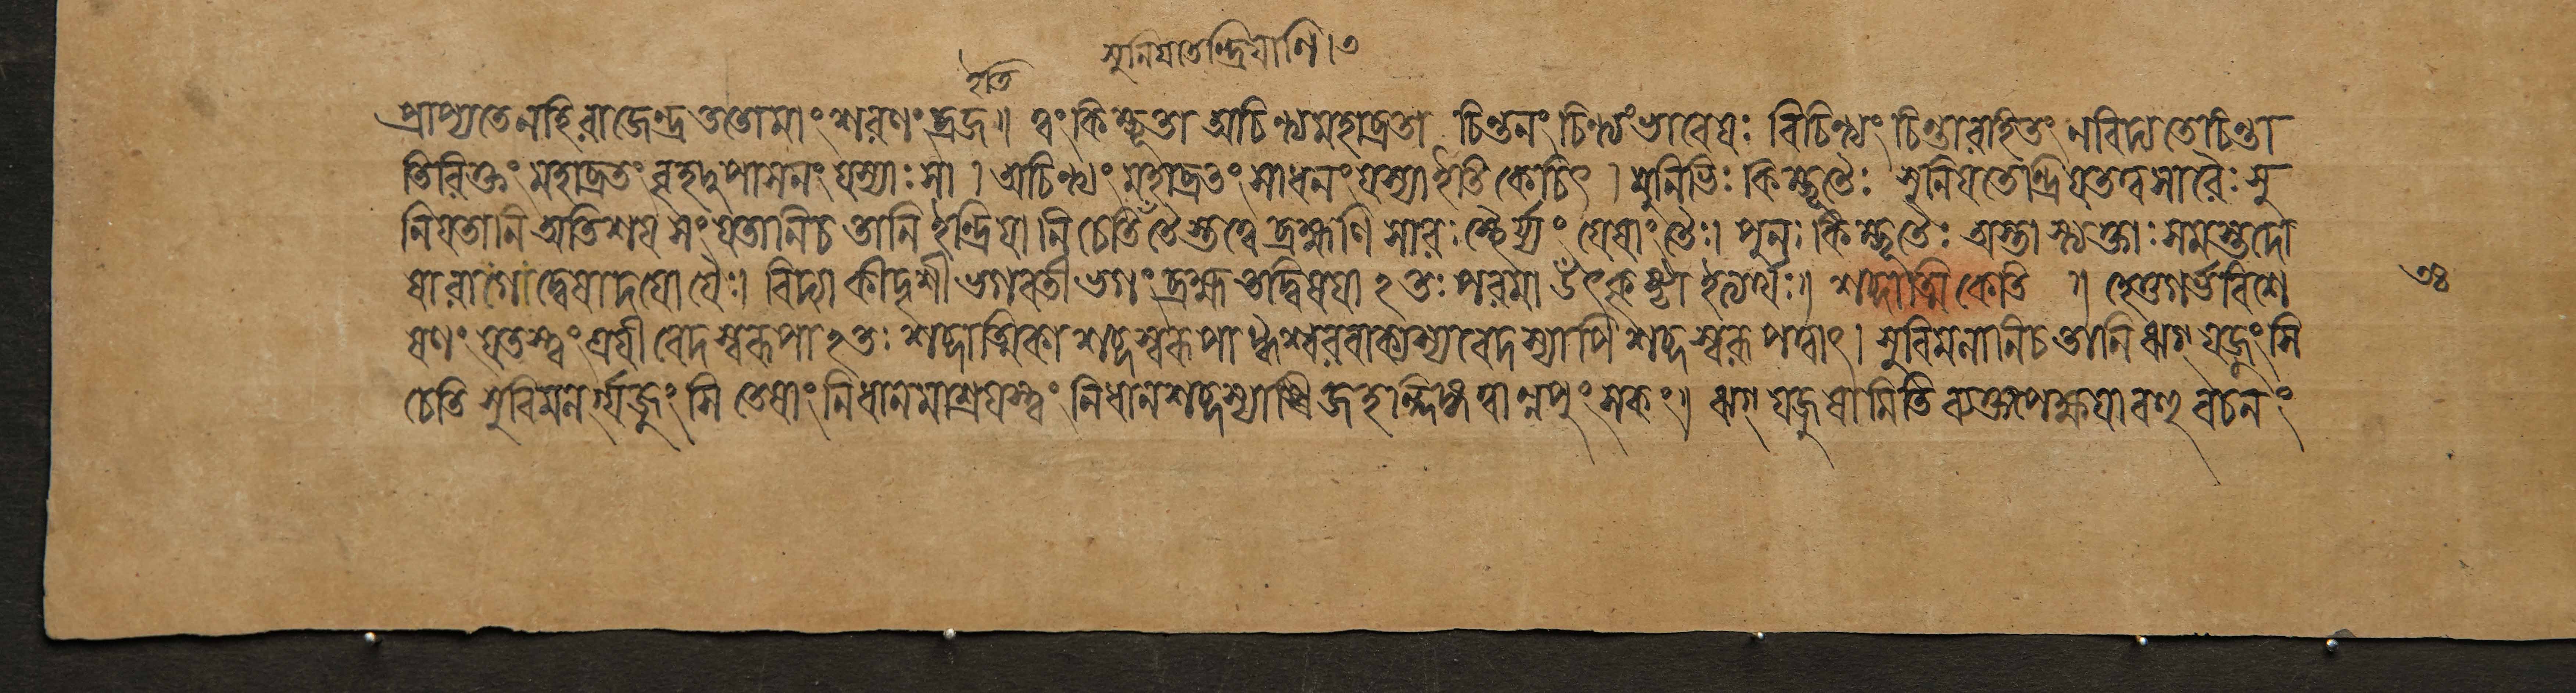 সুনিয়তেন্দ্রিয়াণি।৩
ইতি
প্রাপ্যতে নহি রাজেন্দ্র ততো মাং শরণং ব্রজ॥ ত্বং কিম্ভূতা অচিন্ত্যমহাব্রতা চিন্তনং চিন্ত্যং ভাবে যঃ বিচিন্ত্যং চিন্তারহিতং ন বিদ্যতে চিন্তা
তিরিক্তং মহাব্রতং বৃহদুপাসনং যস্যাঃ সা। অচিন্ত্যং মহাব্রতং সাধনং যস্যা ইতি কেচিৎ। মুনিভিঃ কিম্ভূতৈঃ সুনিয়তেন্দ্রিয়তত্ত্বসারৈঃ সু
নিয়তানি অতিশয় সংযতানি চ তানি ইন্দ্রিয়ানি চেতি তৈস্তত্ত্বে ব্রহ্মণি সারঃ স্থৈর্য্যং যেষাং তৈঃ। পুনঃ কিম্ভূতৈঃ অস্তাস্ত্যক্তাঃ সমস্তদো
ষা রাগোদ্বেষাদয়ো যৈঃ। বিদ্যা কীদৃশী ভগবতী ভগং ব্রহ্ম তদ্বিষয়া ২তঃ পরমা উৎকৃষ্টা ইত্যর্থঃ॥ শব্দাত্মিকেতি ॥ হেতুগর্ভবিশে
ষণং যতস্ত্বং ত্রয়ী বেদস্বরূপা ২তঃ শব্দাত্মিকা শব্দস্বরূপা ঈশ্বরবাক্যস্য বেদস্যাপি শব্দস্বরূপত্বাৎ। সুবিমলানি চ তানি ঋগ্ যজুংসি
চেতি সুবিমলর্গ্যজুংসি তেষাং নিধানমাশ্রয়স্ত্বং নিধানশব্দস্যা জহল্লিঙ্গত্বান্নপুংসকং॥ ঋগ্ যজুষামিতি বহুবচনং